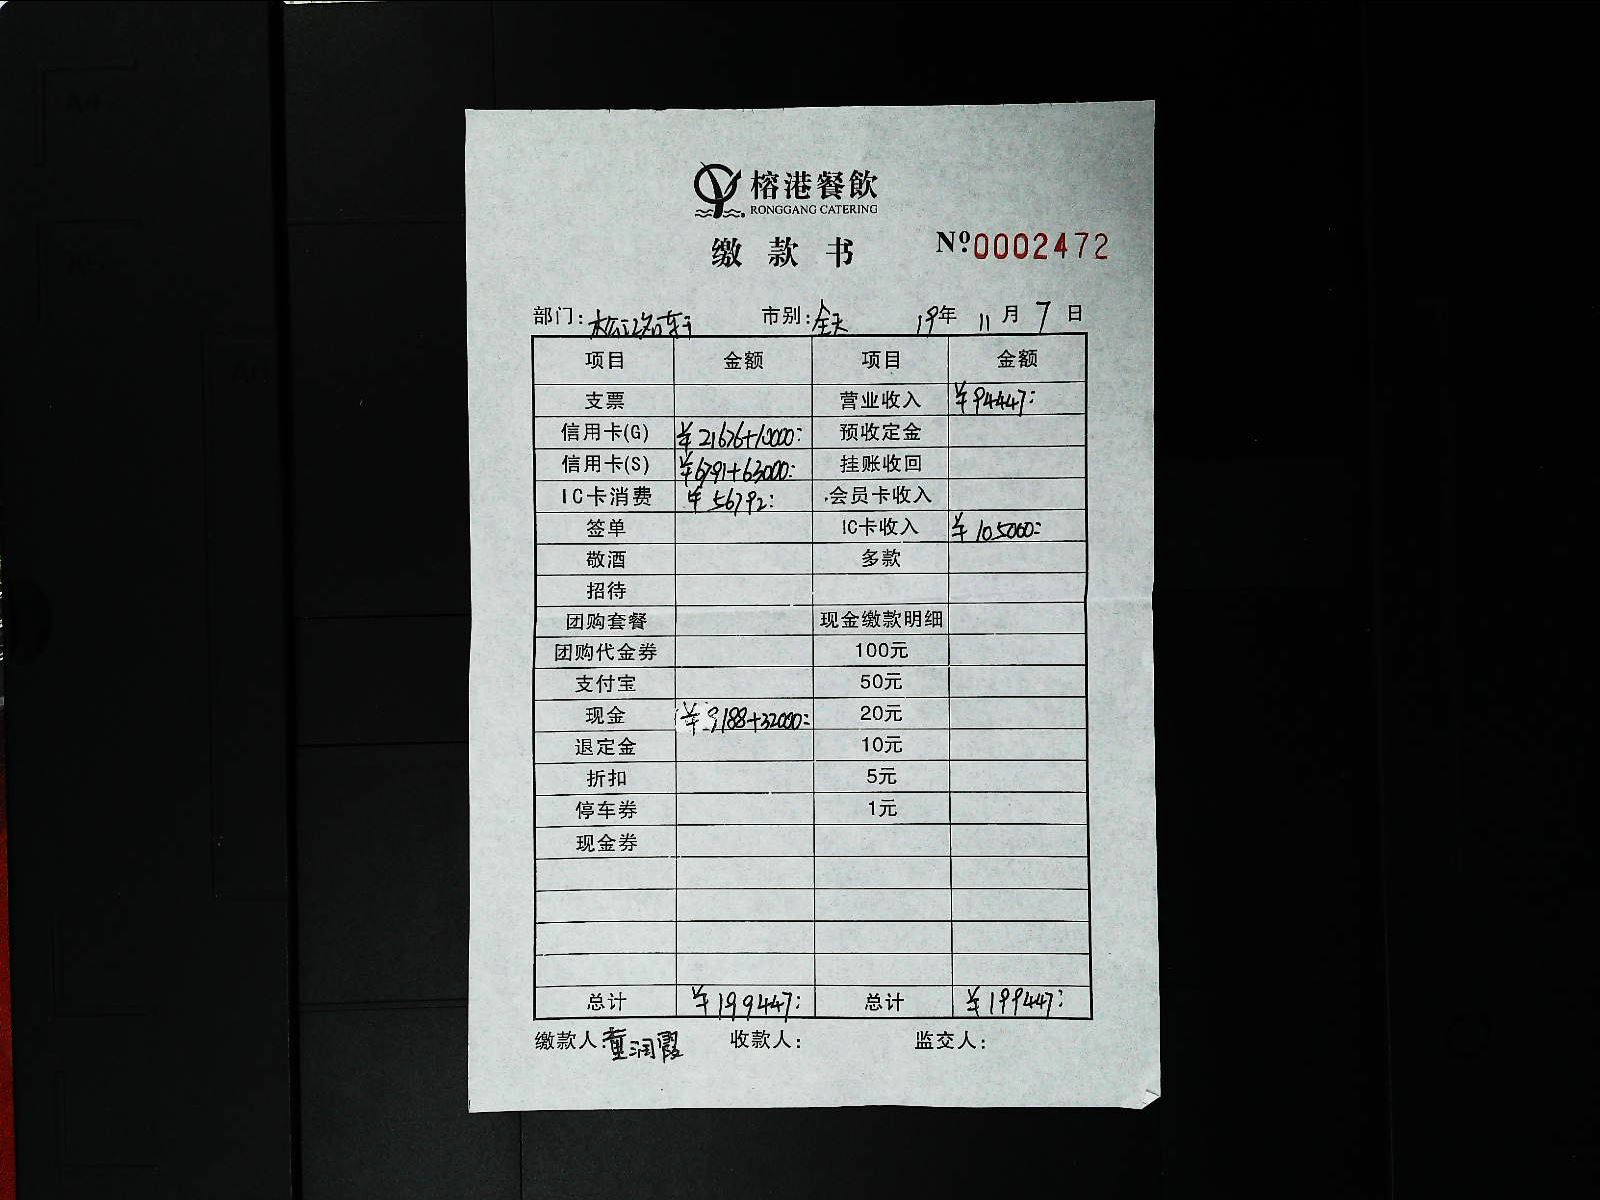 榕港餐飲
RONGGANG CATERING
缴款书 Nº.0002472
部门: 市别:全天 19年 11月 7日
项目 金额 项目 金额
支票 营业收入 ¥94447:
信用卡(G) ¥21676+10000: 预收定金
信用卡(S) ¥6791+63000: 挂账收回
IC卡消费 ¥56792: 会员卡收入
签单 IC卡收入 ¥105000:
敬酒 多款
招待
团购套餐 现金缴款明细
团购代金券 100元
支付宝 50元
现金 ¥9188+32000: 20元
退定金 10元
折扣 5元
停车券 1元
现金券
总计 ¥199447: 总计 ¥199447:
缴款人:董润霞 收款人: 监交人: